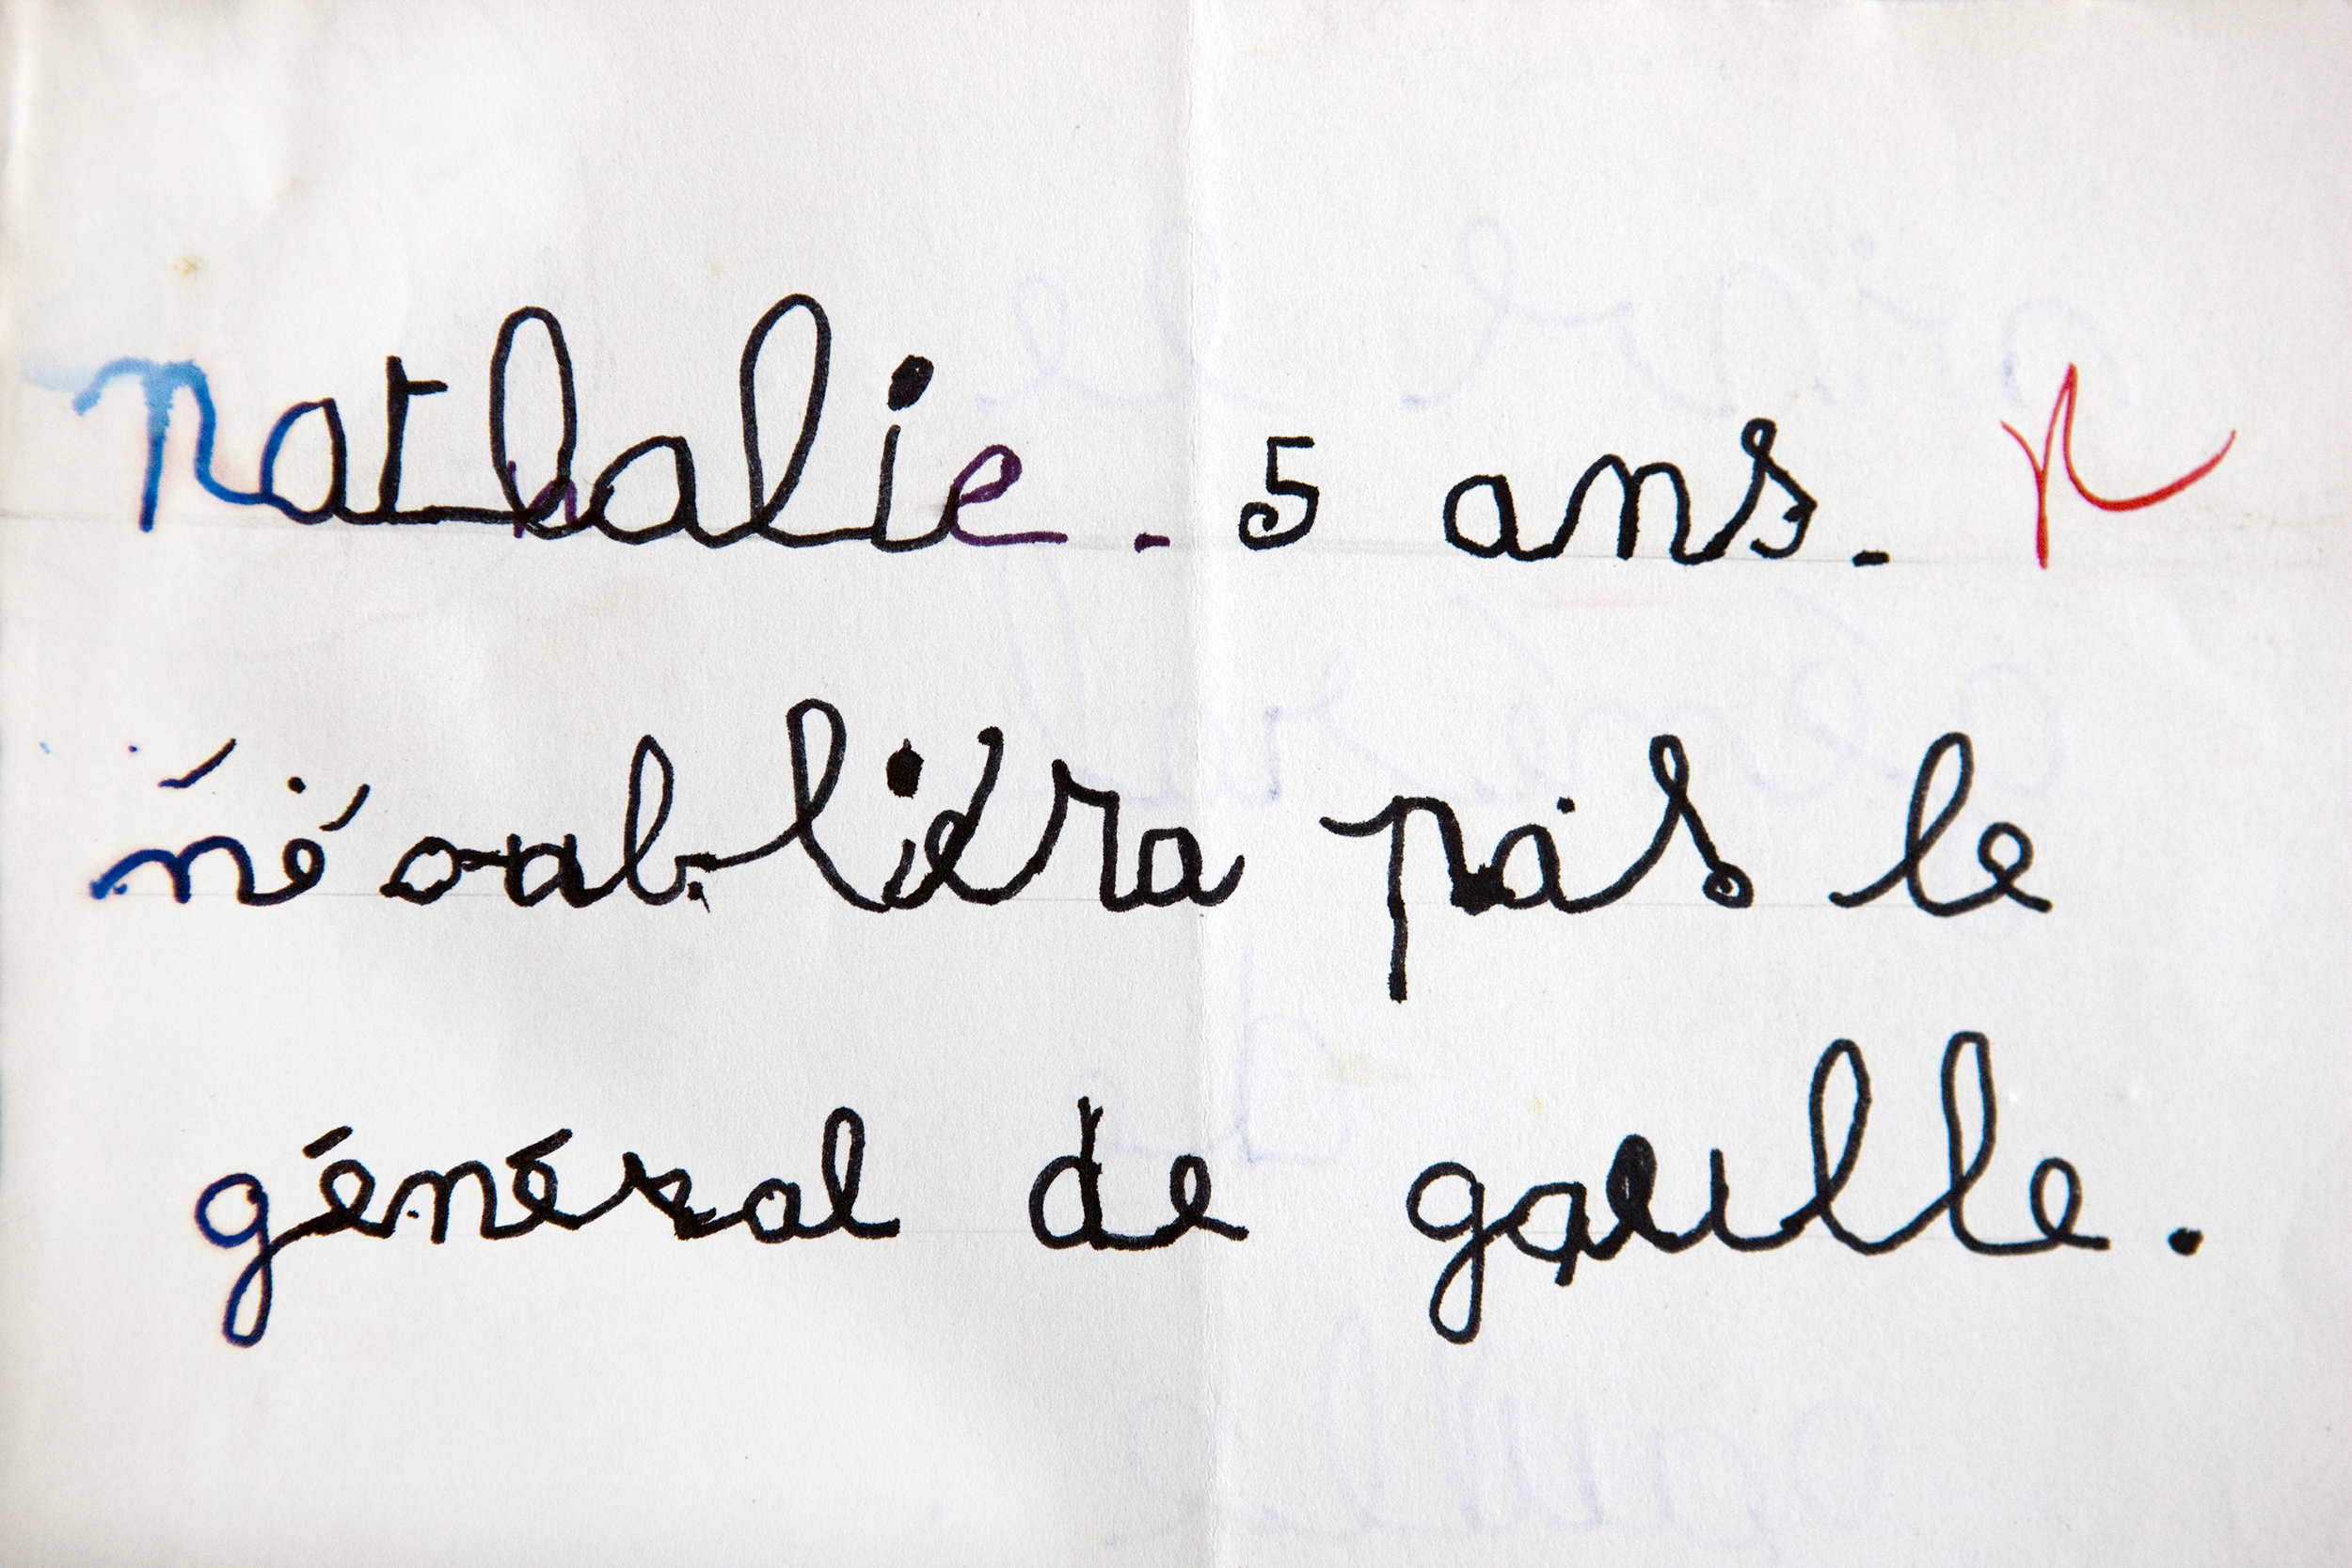 nathalie. 5 ans. n
né oabliéra pas le
général de gaulle.